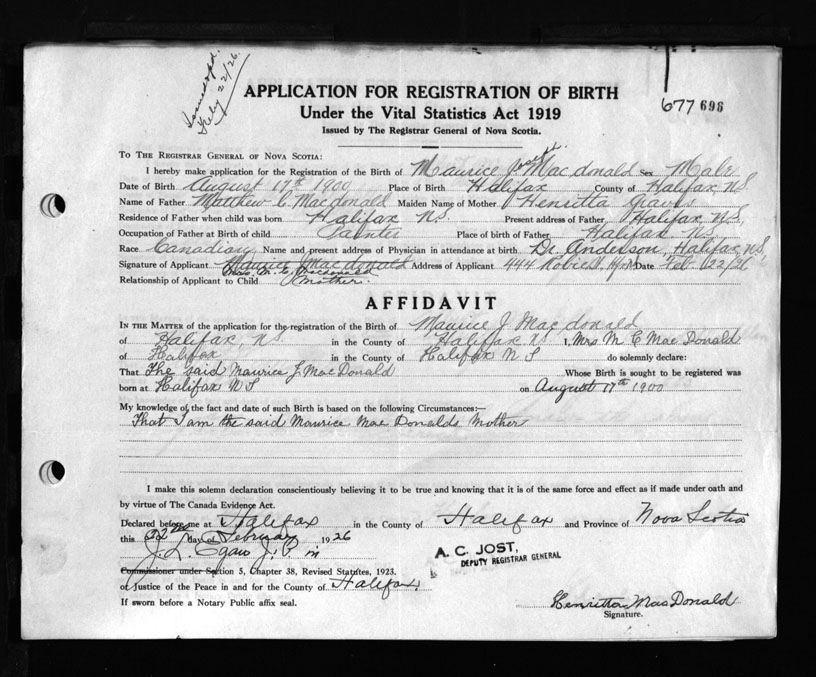 Feby 22/26.
APPLICATION FOR REGISTRATION OF BIRTH
Under the Vital Statistics Act 1919
Issued by The Registrar General of Nova Scotia.
677 698
TO THE REGISTRAR GENERAL OF NOVA SCOTIA:
I hereby make application for the Registration of the Birth of Maurice Joseph Macdonald Sex Male
Date of Birth August 17th 1900 Place of Birth Halifax County of Halifax N.S.
Name of Father Matthew C. Macdonald Maiden Name of Mother Henritta Graves
Residence of Father when child was born Halifax N.S. Present address of Father Halifax N.S.
Occupation of Father at Birth of child Painter Place of birth of Father Halifax N.S.
Race Canadian Name and present address of Physician in attendance at birth Dr. Anderson, Halifax N.S.
Signature of Applicant Maurice J Macdonald Address of Applicant 444 Robie St Date Feb. 22/26
Mrs. M. C. Macdonald
Relationship of Applicant to Child Mother.
AFFIDAVIT
IN THE MATTER of the application for the registration of the Birth of Maurice J. Macdonald
of Halifax, N.S. in the County of Halifax N.S I, Mrs M C MacDonald
of Halifax in the County of Halifax N S do solemnly declare:
That The said Maurice J. MacDonald Whose Birth is sought to be registered was
born at Halifax N S on August 17th 1900
My knowledge of the fact and date of such Birth is based on the following Circumstances:—
That I am the said Maurice MacDonalds Mother
I make this solemn declaration conscientiously believing it to be true and knowing that it is of the same force and effect as if made under oath and
by virtue of The Canada Evidence Act.
Declared before me at Halifax in the County of Halifax and Province of Nova Scotia
this 22nd day of February 1926
J. L. J. P. in
Commissioner under Section 5, Chapter 38, Revised Statutes, 1923.
or Justice of the Peace in and for the County of Halifax.
If sworn before a Notary Public affix seal.
A. C. JOST,
DEPUTY REGISTRAR GENERAL
Henritta MacDonald
Signature.